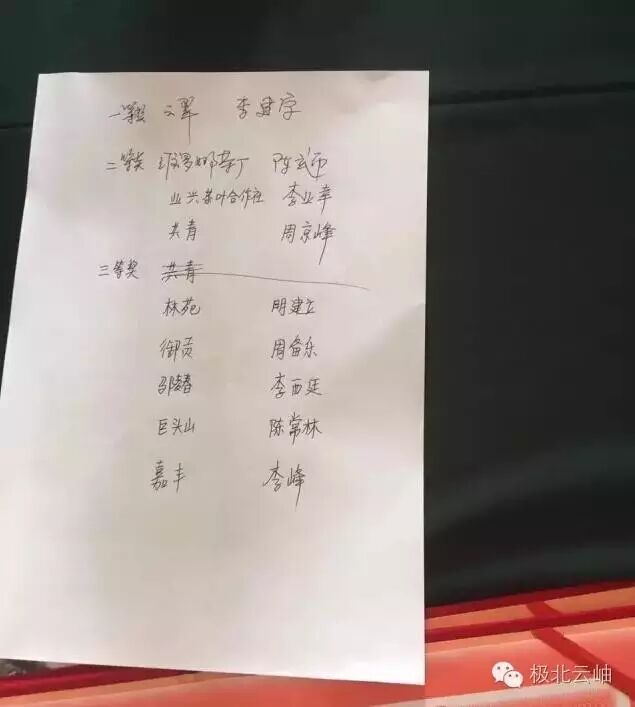 一等奖 李建宇
二等奖 茶厂 陈
业兴茶叶合作社 李业苹
共青 周京峰
三等奖 共青
林苑 明建立
御贡 周备乐
邵 春 李西廷
巨头山 陈常林
嘉丰 李峰
极北云岫